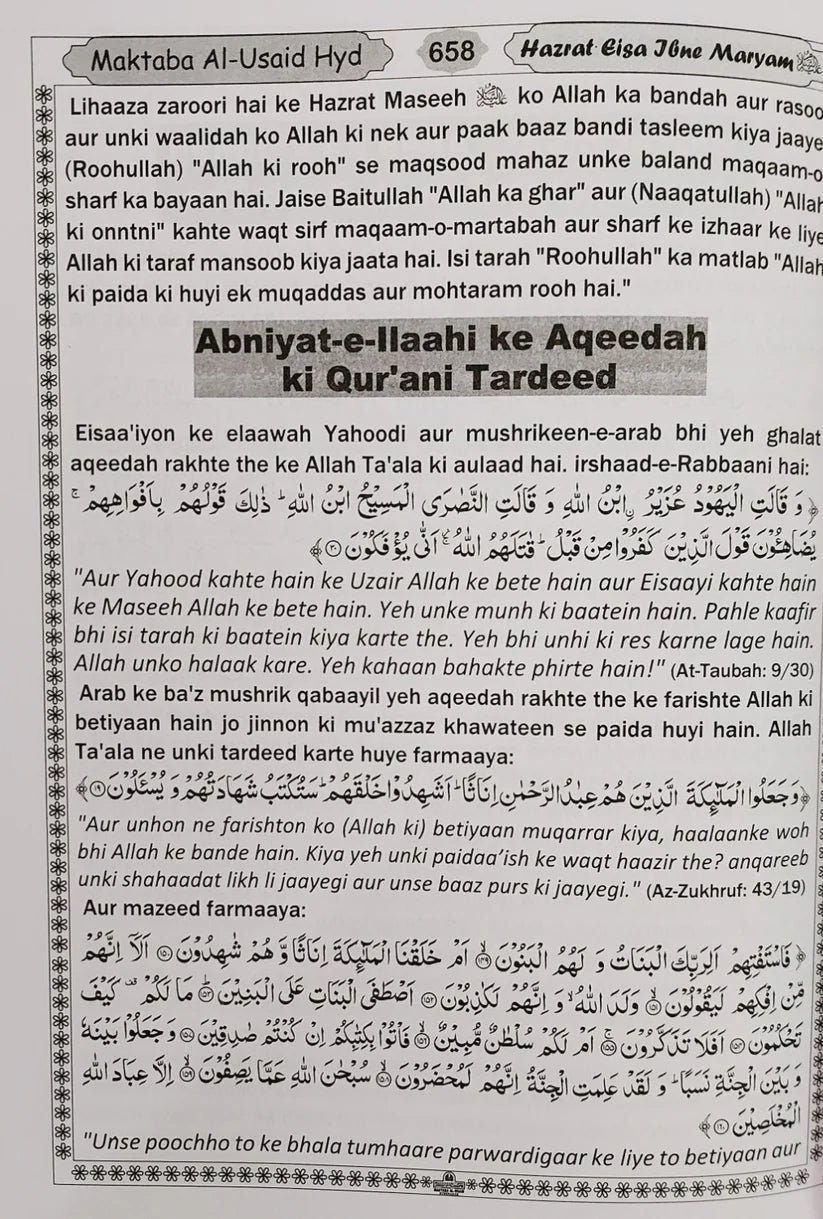 Maktaba Al-Usaid Hyd
658
Hazrat Eisa Ibne Maryam
Lihaaza zaroori hai ke Hazrat Maseeh ko Allah ka bandah aur rasoo
aur unki waalidah ko Allah ki nek aur paak baaz bandi tasleem kiya jaaye
(Roohullah) "Allah ki rooh" se maqsood mahaz unke baland maqaam-o
sharf ka bayaan hai. Jaise Baitullah "Allah ka ghar" aur (Naaqatullah) "Allah
ki onntni" kahte waqt sirf maqaam-o-martabah aur sharf ke izhaar ke liye
Allah ki taraf mansoob kiya jaata hai. Isi tarah "Roohullah" ka matlab "Allah
ki paida ki huyi ek muqaddas aur mohtaram rooh hai."
Abniyat-e-Ilaahi ke Aqeedah
ki Qur'ani Tardeed
Eisaa'iyon ke elaawah Yahoodi aur mushrikeen-e-arab bhi yeh ghalat
aqeedah rakhte the ke Allah Ta'ala ki aulaad hai. irshaad-e-Rabbaani hai:
﴿وَ قَالَتِ الْيَهُوْدُ عُزَيْرُ ۨابْنُ اللّٰهِ وَ قَالَتِ النَّصٰرَى الْمَسِيْحُ ابْنُ اللّٰهِ ؕ ذٰلِكَ قَوْلُهُمْ بِاَفْوَاهِهِمْ ۚ
يُضَاهِـُٔوْنَ قَوْلَ الَّذِيْنَ كَفَرُوْا مِنْ قَبْلُ ؕ قٰتَلَهُمُ اللّٰهُ ۚ اَنّٰى يُؤْفَكُوْنَ ۝۳۰﴾
"Aur Yahood kahte hain ke Uzair Allah ke bete hain aur Eisaayi kahte hain
ke Maseeh Allah ke bete hain. Yeh unke munh ki baatein hain. Pahle kaafir
bhi isi tarah ki baatein kiya karte the. Yeh bhi unhi ki res karne lage hain.
Allah unko halaak kare. Yeh kahaan bahakte phirte hain!" (At-Taubah: 9/30)
Arab ke ba'z mushrik qabaayil yeh aqeedah rakhte the ke farishte Allah ki
betiyaan hain jo jinnon ki mu'azzaz khawateen se paida huyi hain. Allah
Ta'ala ne unki tardeed karte huye farmaaya:
﴿وَ جَعَلُوا الْمَلٰٓىِٕكَةَ الَّذِيْنَ هُمْ عِبٰدُ الرَّحْمٰنِ اِنَاثًا ؕ اَشَهِدُوْا خَلْقَهُمْ ؕ سَتُكْتَبُ شَهَادَتُهُمْ وَ يُسْـَٔلُوْنَ ۝۱۹﴾
"Aur unhon ne farishton ko (Allah ki) betiyaan muqarrar kiya, haalaanke woh
bhi Allah ke bande hain. Kiya yeh unki paidaa'ish ke waqt haazir the? anqareeb
unki shahaadat likh li jaayegi aur unse baaz purs ki jaayegi." (Az-Zukhruf: 43/19)
Aur mazeed farmaaya:
﴿فَاسْتَفْتِهِمْ اَلِرَبِّكَ الْبَنَاتُ وَ لَهُمُ الْبَنُوْنَ ۝۱۴۹ اَمْ خَلَقْنَا الْمَلٰٓىِٕكَةَ اِنَاثًا وَّ هُمْ شٰهِدُوْنَ ۝۱۵۰ اَلَاۤ اِنَّهُمْ
مِّنْ اِفْكِهِمْ لَيَقُوْلُوْنَ ۝۱۵۱ وَلَدَ اللّٰهُ ۙ وَ اِنَّهُمْ لَكٰذِبُوْنَ ۝۱۵۲ اَصْطَفَى الْبَنَاتِ عَلَى الْبَنِيْنَ ۝۱۵۳ مَا لَكُمْ ۫ كَيْفَ
تَحْكُمُوْنَ ۝۱۵۴ اَفَلَا تَذَكَّرُوْنَ ۝۱۵۵ اَمْ لَكُمْ سُلْطٰنٌ مُّبِيْنٌ ۝۱۵۶ فَاْتُوْا بِكِتٰبِكُمْ اِنْ كُنْتُمْ صٰدِقِيْنَ ۝۱۵۷ وَ جَعَلُوْا بَيْنَهٗ
وَ بَيْنَ الْجِنَّةِ نَسَبًا ؕ وَ لَقَدْ عَلِمَتِ الْجِنَّةُ اِنَّهُمْ لَمُحْضَرُوْنَ ۝۱۵۸ سُبْحٰنَ اللّٰهِ عَمَّا يَصِفُوْنَ ۝۱۵۹ اِلَّا عِبَادَ اللّٰهِ
الْمُخْلَصِيْنَ ۝۱۶۰﴾
"Unse poochho to ke bhala tumhaare parwardigaar ke liye to betiyaan aur